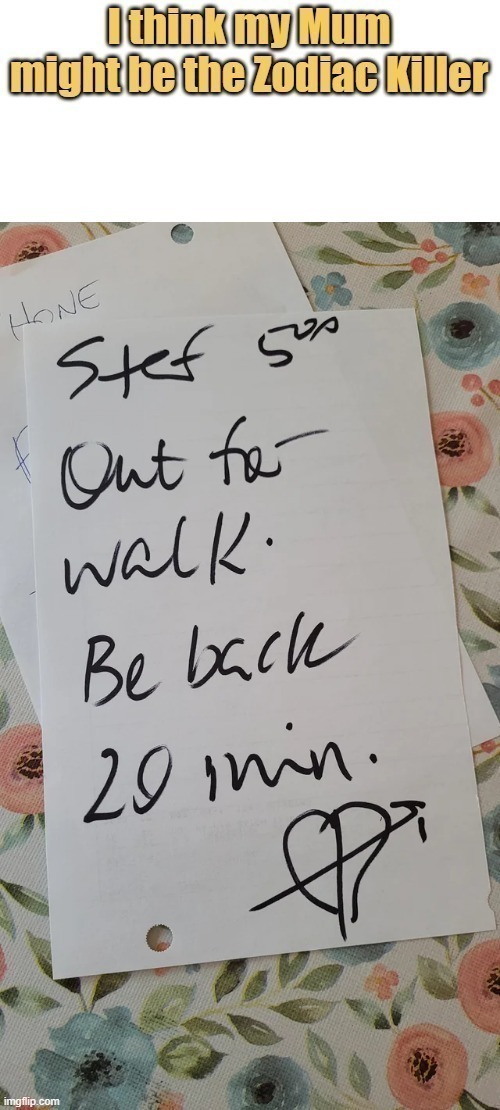 I think my Mum
might be the Zodiac Killer
HONE
Stef 500
Out for
walk.
Be back
20 min.
imgflip.com